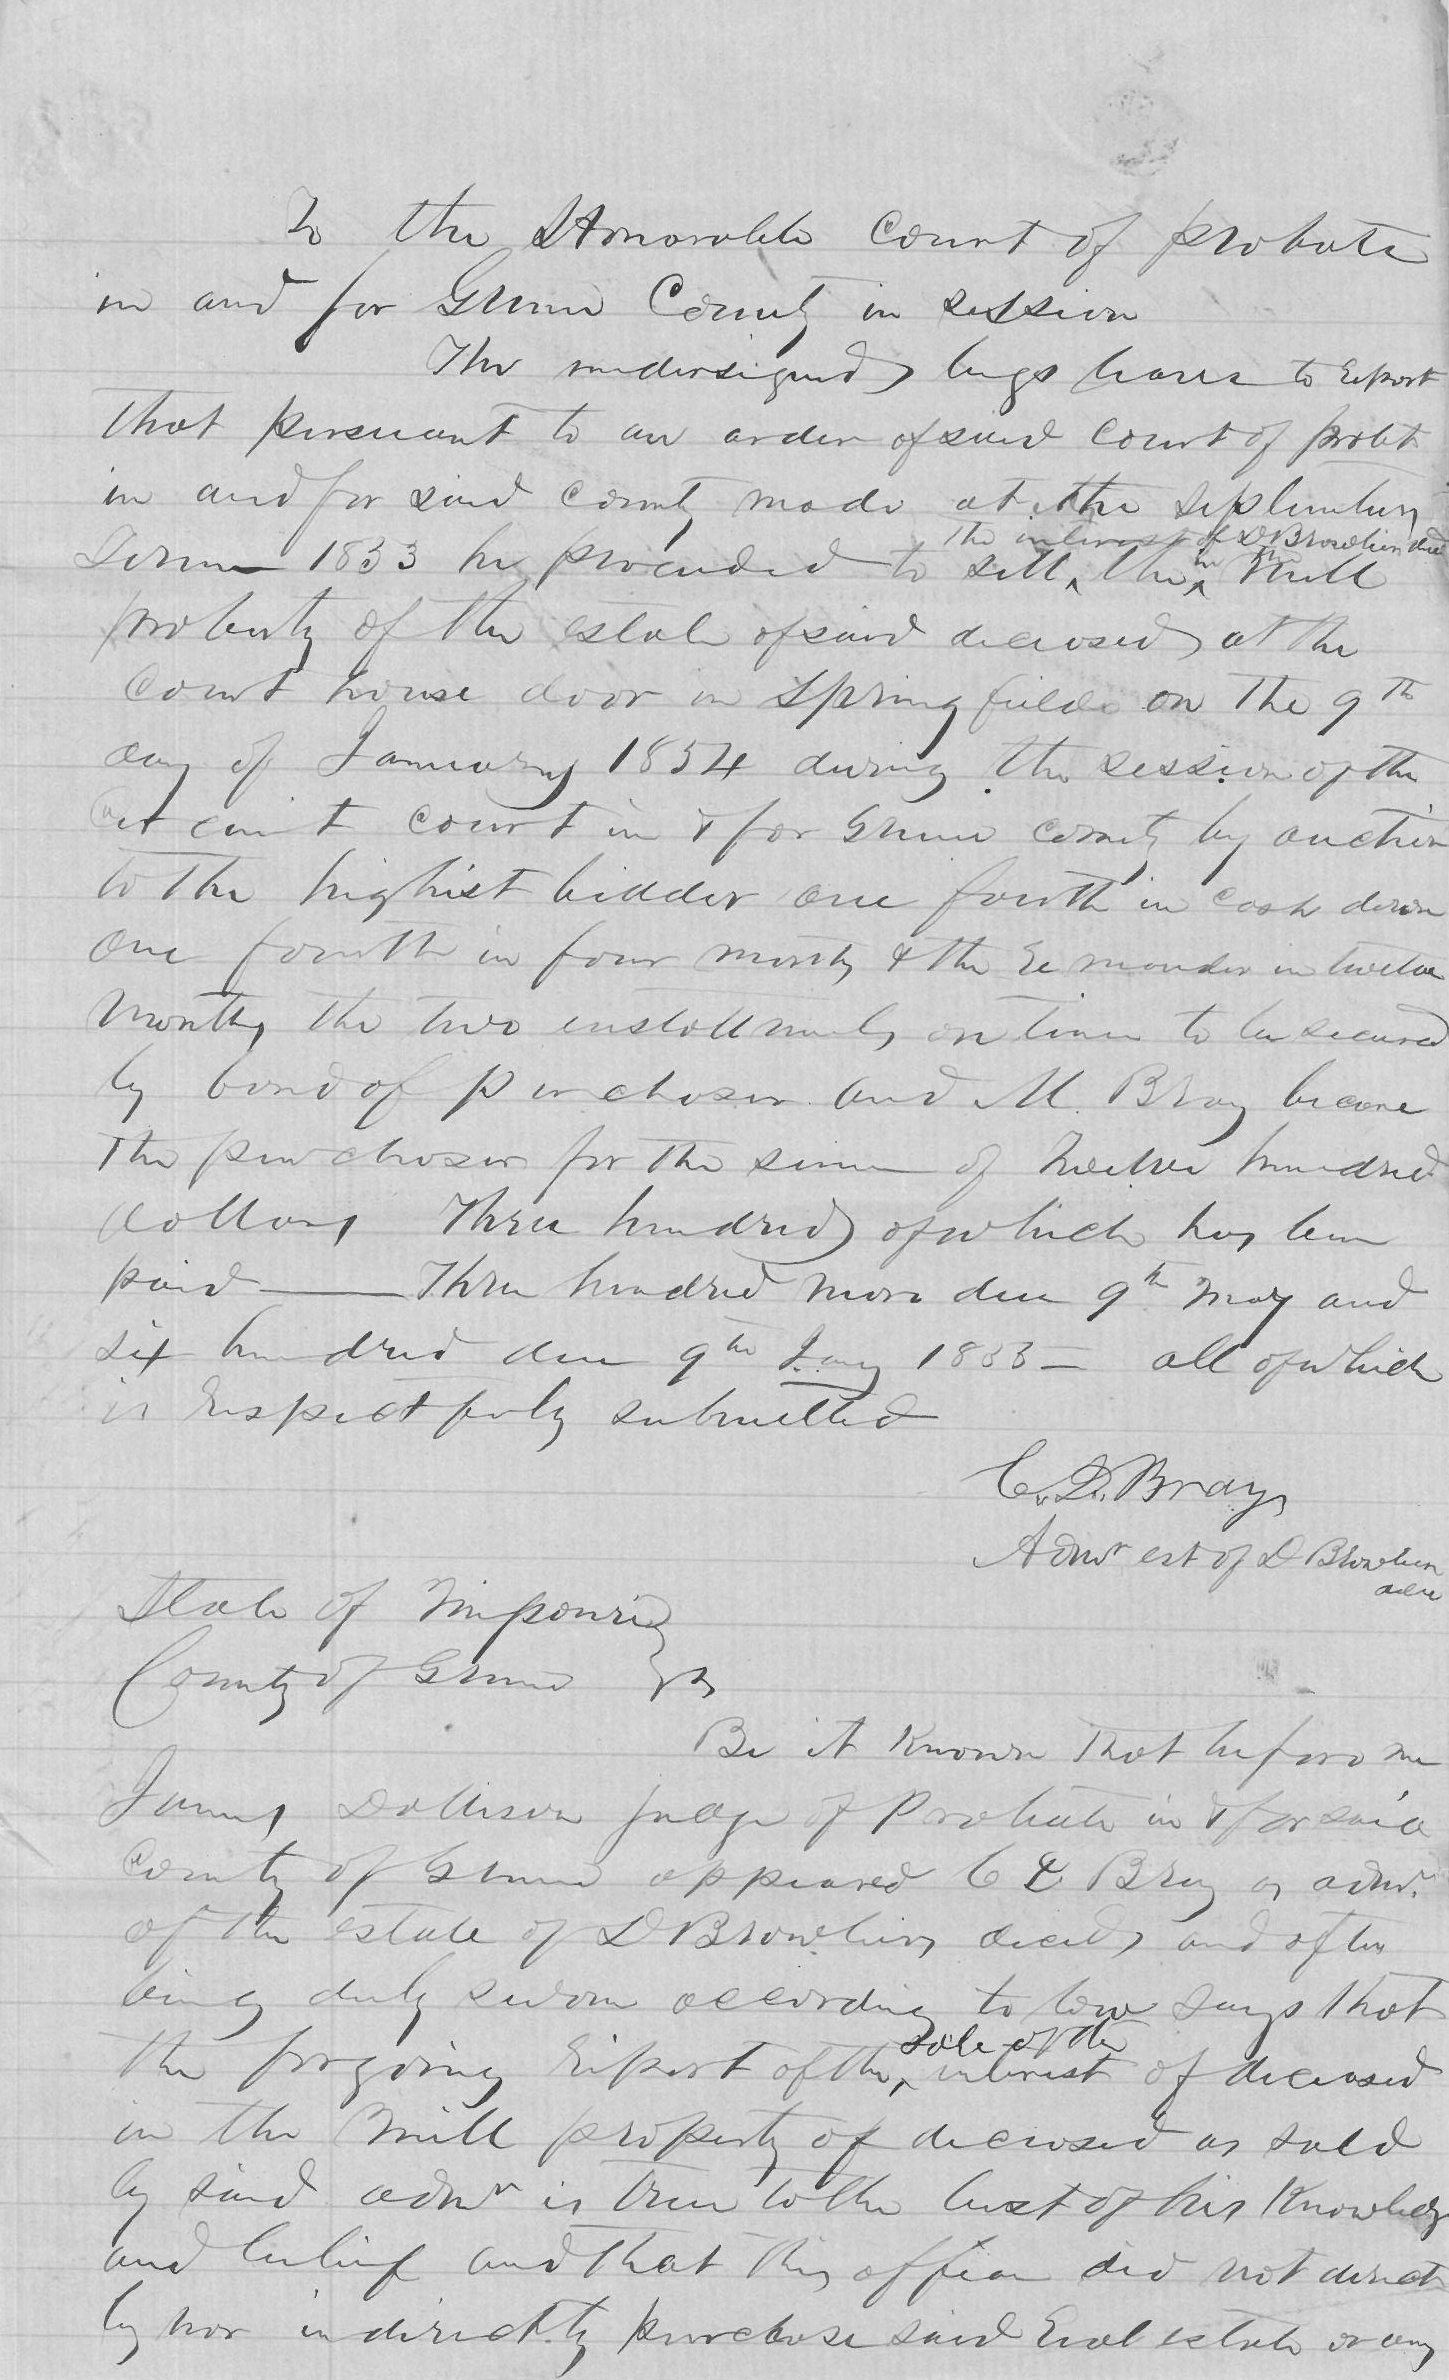 To the Honorable Court of probate
in and for Greene County in session
The undersigned begs leave to Report
that pursuant to an order of said Court of probt
in and for said County made at the September
Term 1853 he proceeded to sell the interest of D Browhen decd in the mill
property of the estate of said deceased at the
Court house door in Springfield on the 9th
day of January 1854 during the session of the
Circuit court in & for Greene County by auction
to the highest bidder one fourth in cash down
one fourth in four months & the Remainder in twelve
Months the two installments on time to be secured
by bond of purchaser and M. Bray became
the purchaser for the sum of Twelve hundred
dollars Three hundred of which has been
paid — Three hundred more due 9th May and
six hundred due 9th Jany 1855 — all of which
is Respectfuly submitted
C. D. Bray,
Admr est of D Browhen
decd
State of Missouri
County of Greene ss
Be it Known that before me
James Dollison judge of Probate in & for said
County of Greene appeared C D Bray as admr.
of the estate of D Browhen, decd, and after
being duly sworn according to law says that
the forgoing Report of the sale of the interest of deceased
in the Mill property of deceased as sold
by said admr is true to the best of his Knowledg
and belief and that this affian did not direct
ly nor indirectly purchase said Real estate or any